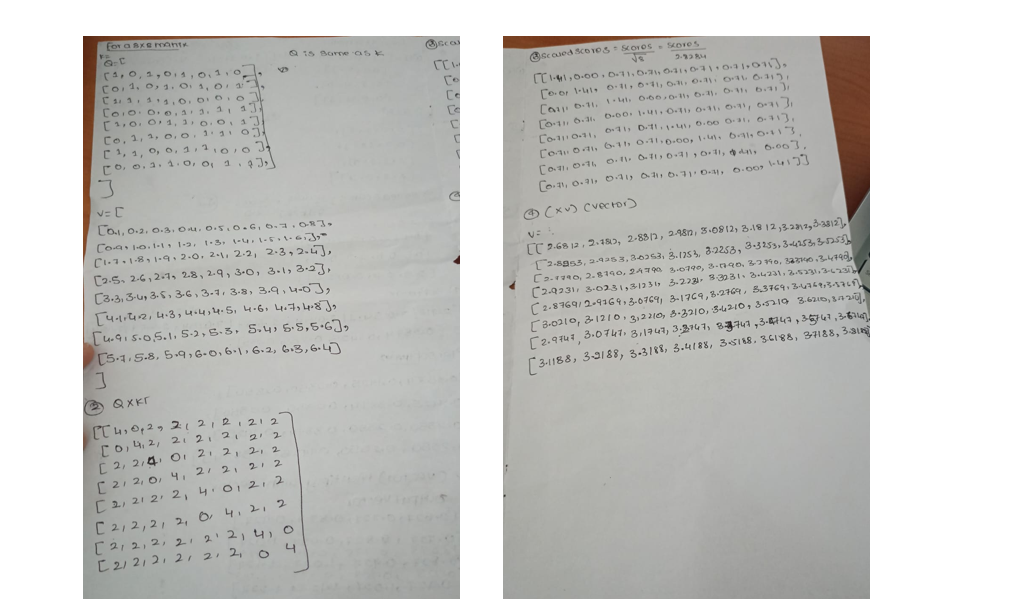 For a 8x8 matrix
K=
Q=[
Q is same as K
[1, 0, 1, 0, 1, 0, 1, 0],
[0, 1, 0, 1, 0, 1, 0, 1],
[1, 1, 1, 1, 0, 0, 0, 0],
[0, 0, 0, 0, 1, 1, 1, 1],
[1, 0, 0, 1, 1, 0, 0, 1],
[0, 1, 1, 0, 0, 1, 1, 0],
[1, 1, 0, 0, 1, 1, 0, 0],
[0, 0, 1, 1, 0, 0, 1, 1],
]
V=[
[0.1, 0.2, 0.3, 0.4, 0.5, 0.6, 0.7, 0.8],
[0.9, 1.0, 1.1, 1.2, 1.3, 1.4, 1.5, 1.6],
[1.7, 1.8, 1.9, 2.0, 2.1, 2.2, 2.3, 2.4],
[2.5, 2.6, 2.7, 2.8, 2.9, 3.0, 3.1, 3.2],
[3.3, 3.4, 3.5, 3.6, 3.7, 3.8, 3.9, 4.0],
[4.1, 4.2, 4.3, 4.4, 4.5, 4.6, 4.7, 4.8],
[4.9, 5.0, 5.1, 5.2, 5.3, 5.4, 5.5, 5.6],
[5.7, 5.8, 5.9, 6.0, 6.1, 6.2, 6.3, 6.4]
]
② QXKT
[[4, 0, 2, 2, 2, 2, 2, 2
[0, 4, 2, 2, 2, 2, 2, 2
[2, 2, 4, 0, 2, 2, 2, 2
[2, 2, 0, 4, 2, 2, 2, 2
[2, 2, 2, 2, 4, 0, 2, 2
[2, 2, 2, 2, 0, 4, 2, 2
[2, 2, 2, 2, 2, 2, 4, 0
[2, 2, 2, 2, 2, 2, 0 4
③ scaled scores = scores/√8 = scores/2.8284
[[1.41, 0.00, 0.71, 0.71, 0.71, 0.71, 0.71, 0.71],
[0.0, 1.41, 0.71, 0.71, 0.71, 0.71, 0.71, 0.71],
[0.71, 0.71, 1.41, 0.00, 0.71, 0.71, 0.71, 0.71],
[0.71, 0.71, 0.00, 1.41, 0.71, 0.71, 0.71, 0.71],
[0.71, 0.71, 0.71, 0.71, 1.41, 0.00, 0.71, 0.71],
[0.71, 0.71, 0.71, 0.71, 0.00, 1.41, 0.71, 0.71],
[0.71, 0.71, 0.71, 0.71, 0.71, 0.71, 1.41, 0.00],
[0.71, 0.71, 0.71, 0.71, 0.71, 0.71, 0.00, 1.41]]
④ (XV) (vector)
V=
[[2.6812, 2.782, 2.8812, 2.9812, 3.0812, 3.1812, 3.2812, 3.3812],
[2.8253, 2.9253, 3.0253, 3.1253, 3.2253, 3.3253, 3.4253, 3.5253],
[2.7790, 2.8790, 2.9790, 3.0790, 3.1790, 3.2790, 3.3790, 3.4790],
[2.9231, 3.0231, 3.1231, 3.2231, 3.3231, 3.4231, 3.5231, 3.6231],
[2.8769, 2.9769, 3.0769, 3.1769, 3.2769, 3.3769, 3.4769, 3.5769],
[3.0210, 3.1210, 3.2210, 3.3210, 3.4210, 3.5210, 3.6210, 3.7210],
[2.9747, 3.0747, 3.1747, 3.2747, 3.3747, 3.4747, 3.5747, 3.6747],
[3.1188, 3.2188, 3.3188, 3.4188, 3.5188, 3.6188, 3.7188, 3.8188]